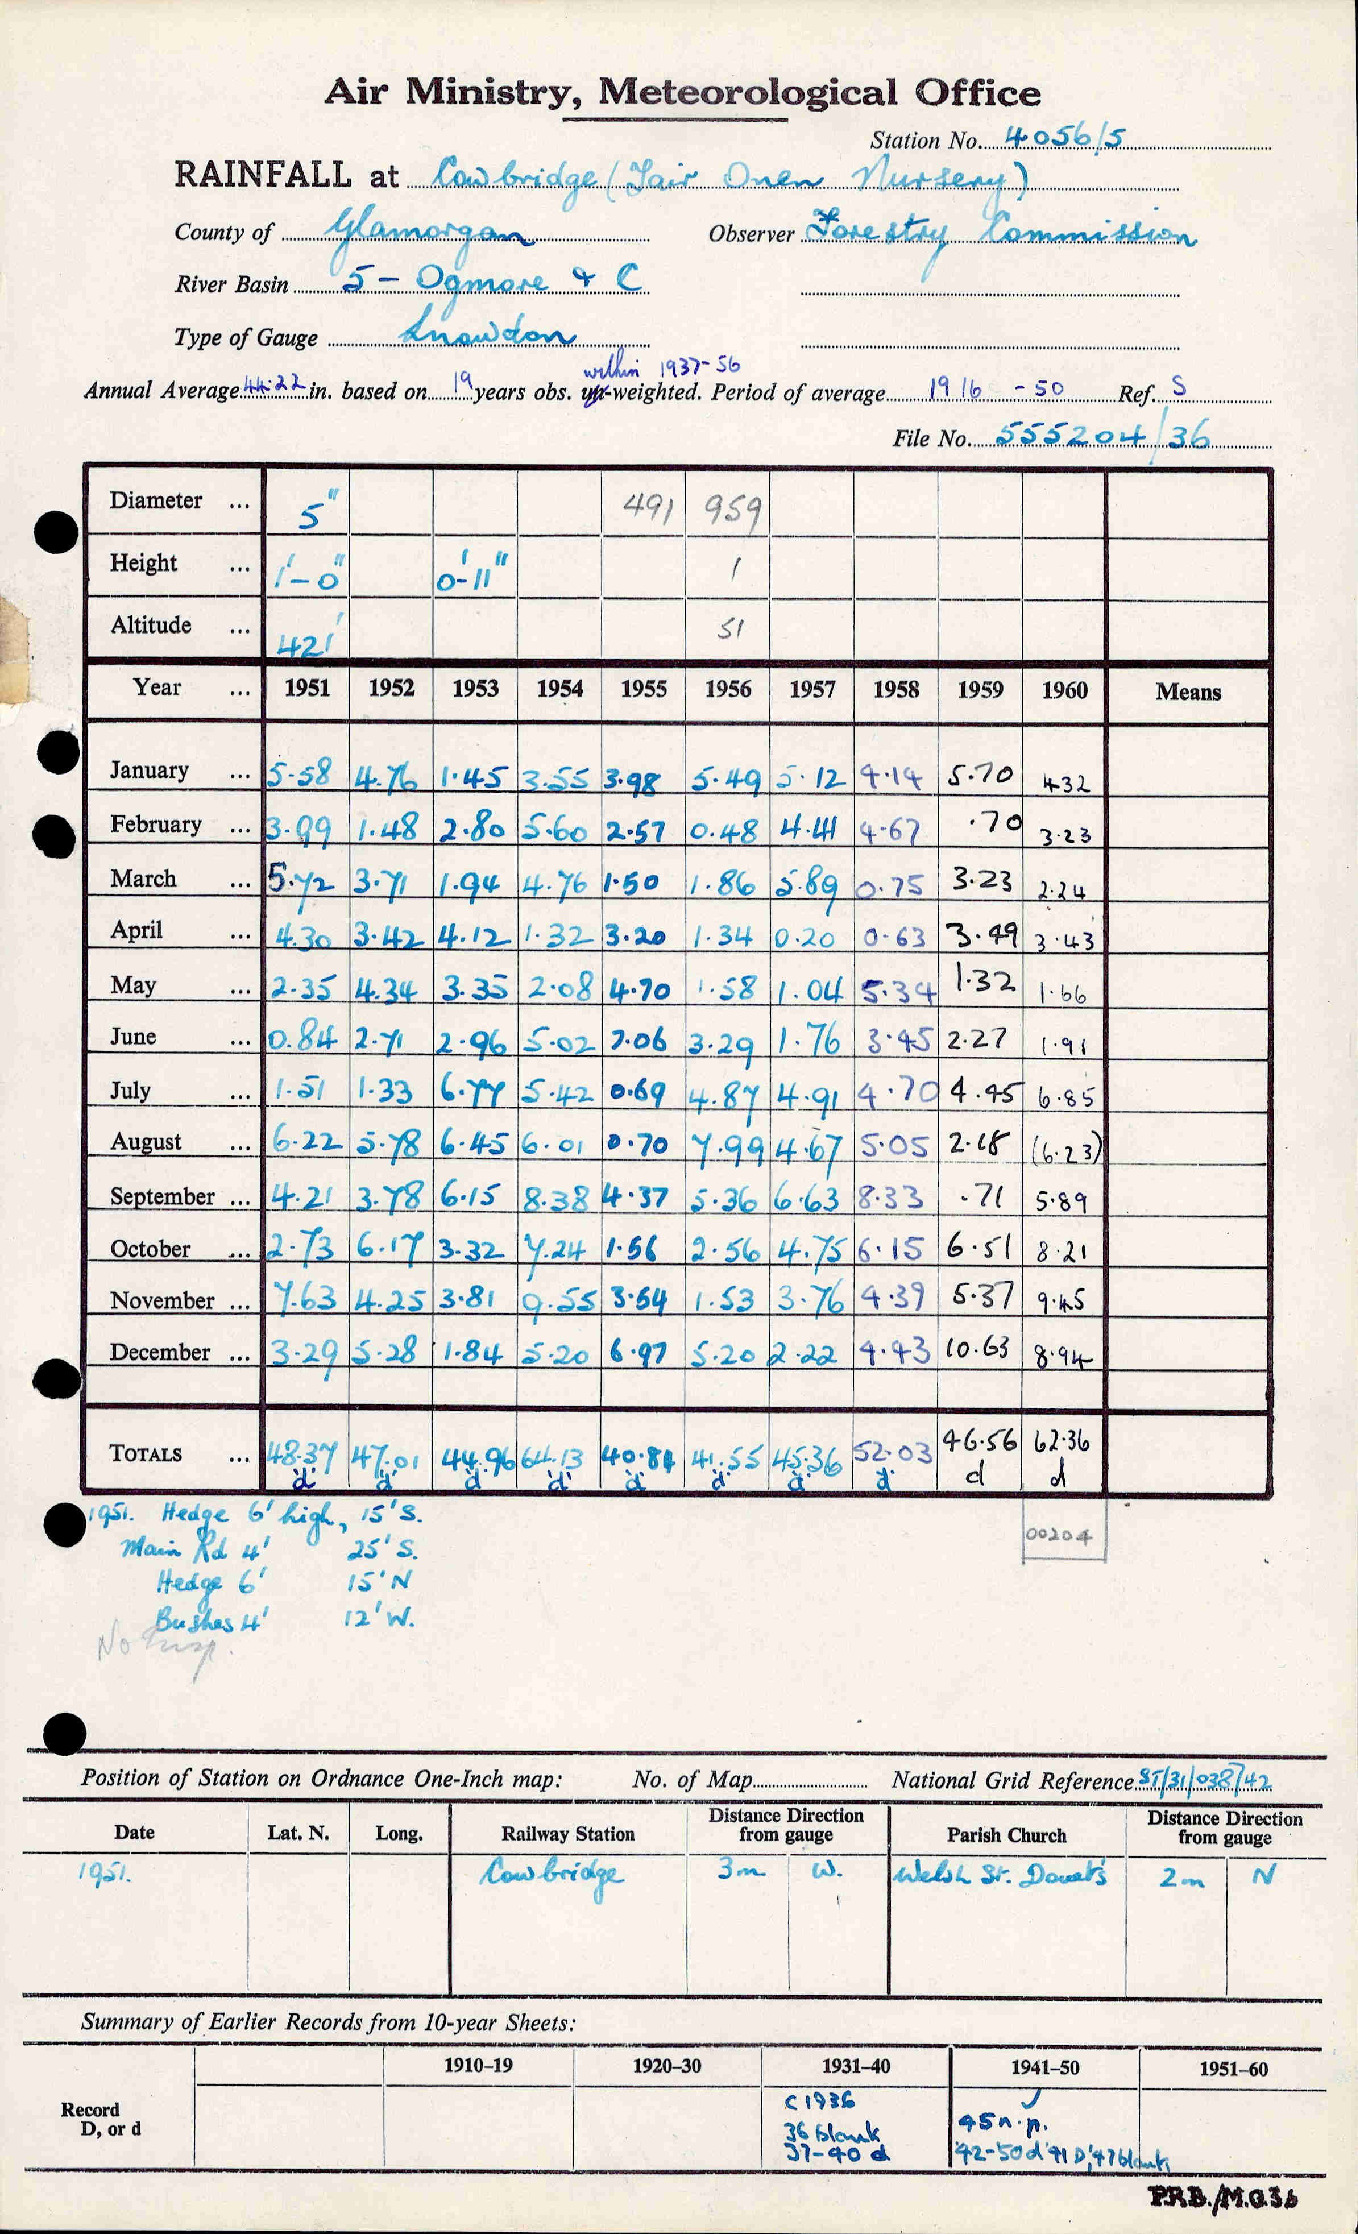 Air Ministry, Meteorological Office
Station No. 4056/5
RAINFALL at Cowbridge (Tair Onen Nursery)
County of Glamorgan Observer Forestry Commission
River Basin 5 - Ogmore & C
Type of Gauge Snowdon
within 1937-56
Annual Average 44.22 in. based on 19 years obs. un-weighted. Period of average 1916 - 50 Ref. S
File No. 555204/36
Diameter ... 5" 491 959
Height ... 1'-0" 0'-11" 1
Altitude ... 421' 51
Year ... 1951 1952 1953 1954 1955 1956 1957 1958 1959 1960 Means
January ... 5.58 4.76 1.45 3.55 3.98 5.49 5.12 4.14 5.70 4.32
February ... 3.99 1.48 2.80 5.60 2.57 0.48 4.41 4.67 .70 3.23
March ... 5.72 3.71 1.94 4.76 1.50 1.86 5.89 0.75 3.23 2.24
April ... 4.30 3.42 4.12 1.32 3.20 1.34 0.20 0.63 3.49 3.43
May ... 2.35 4.34 3.35 2.08 4.70 1.58 1.04 5.34 1.32 1.66
June ... 0.84 2.71 2.96 5.02 7.06 3.29 1.76 3.45 2.27 1.91
July ... 1.51 1.33 6.77 5.42 0.69 4.87 4.91 4.70 4.45 6.85
August ... 6.22 5.78 6.45 6.01 0.70 7.99 4.67 5.05 2.18 (6.23)
September ... 4.21 3.78 6.15 8.38 4.37 5.36 6.63 8.33 .71 5.89
October ... 2.73 6.17 3.32 7.24 1.56 2.56 4.75 6.15 6.51 8.21
November ... 7.63 4.25 3.81 9.55 3.54 1.53 3.76 4.39 5.37 9.45
December ... 3.29 5.28 1.84 5.20 6.97 5.20 2.22 4.43 10.63 8.94
TOTALS ... 48.37 47.01 44.96 64.13 40.84 41.55 45.36 52.03 46.56 62.36
d d d d d d d d d d
1951. Hedge 6' high, 15' S.
00204
Main Rd 4' 25' S.
Hedge 6' 15' N
Bushes 4' 12' W.
No Insp.
Position of Station on Ordnance One-Inch map: No. of Map National Grid Reference ST/31/038742
Date Lat. N. Long. Railway Station Distance Direction from gauge Parish Church Distance Direction from gauge
1951. Cowbridge 3m W. Welsh St. Donat's 2m N
Summary of Earlier Records from 10-year Sheets:
1910–19 1920–30 1931–40 1941–50 1951–60
Record D, or d
C 1936
36 blank
37-40 d
45 n.p.
42-50 d '41 D, '47 blank
P.R.B./M.O.36